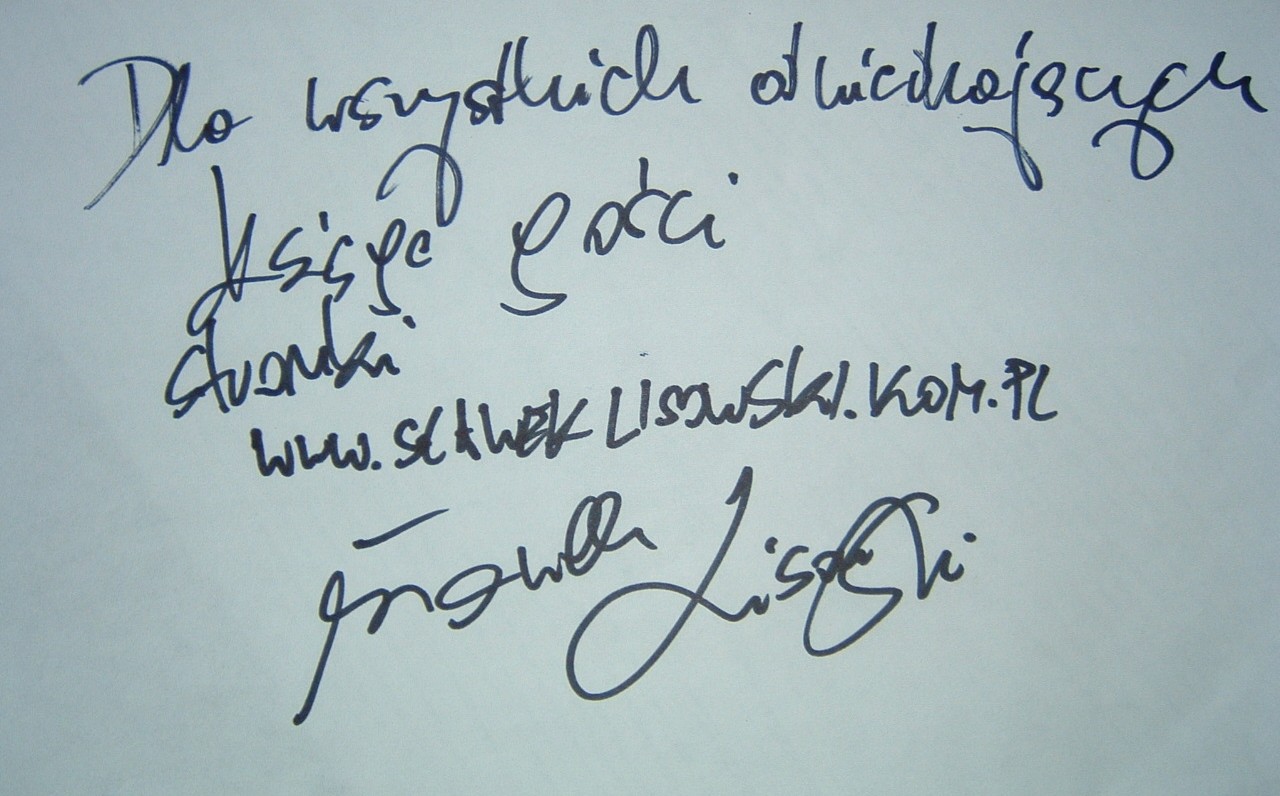 Dla wszystkich odwiedzających
księgę gości
stronki
www.SŁAWEKLISOWSKI.KOM.PL
Sławek Lisowski